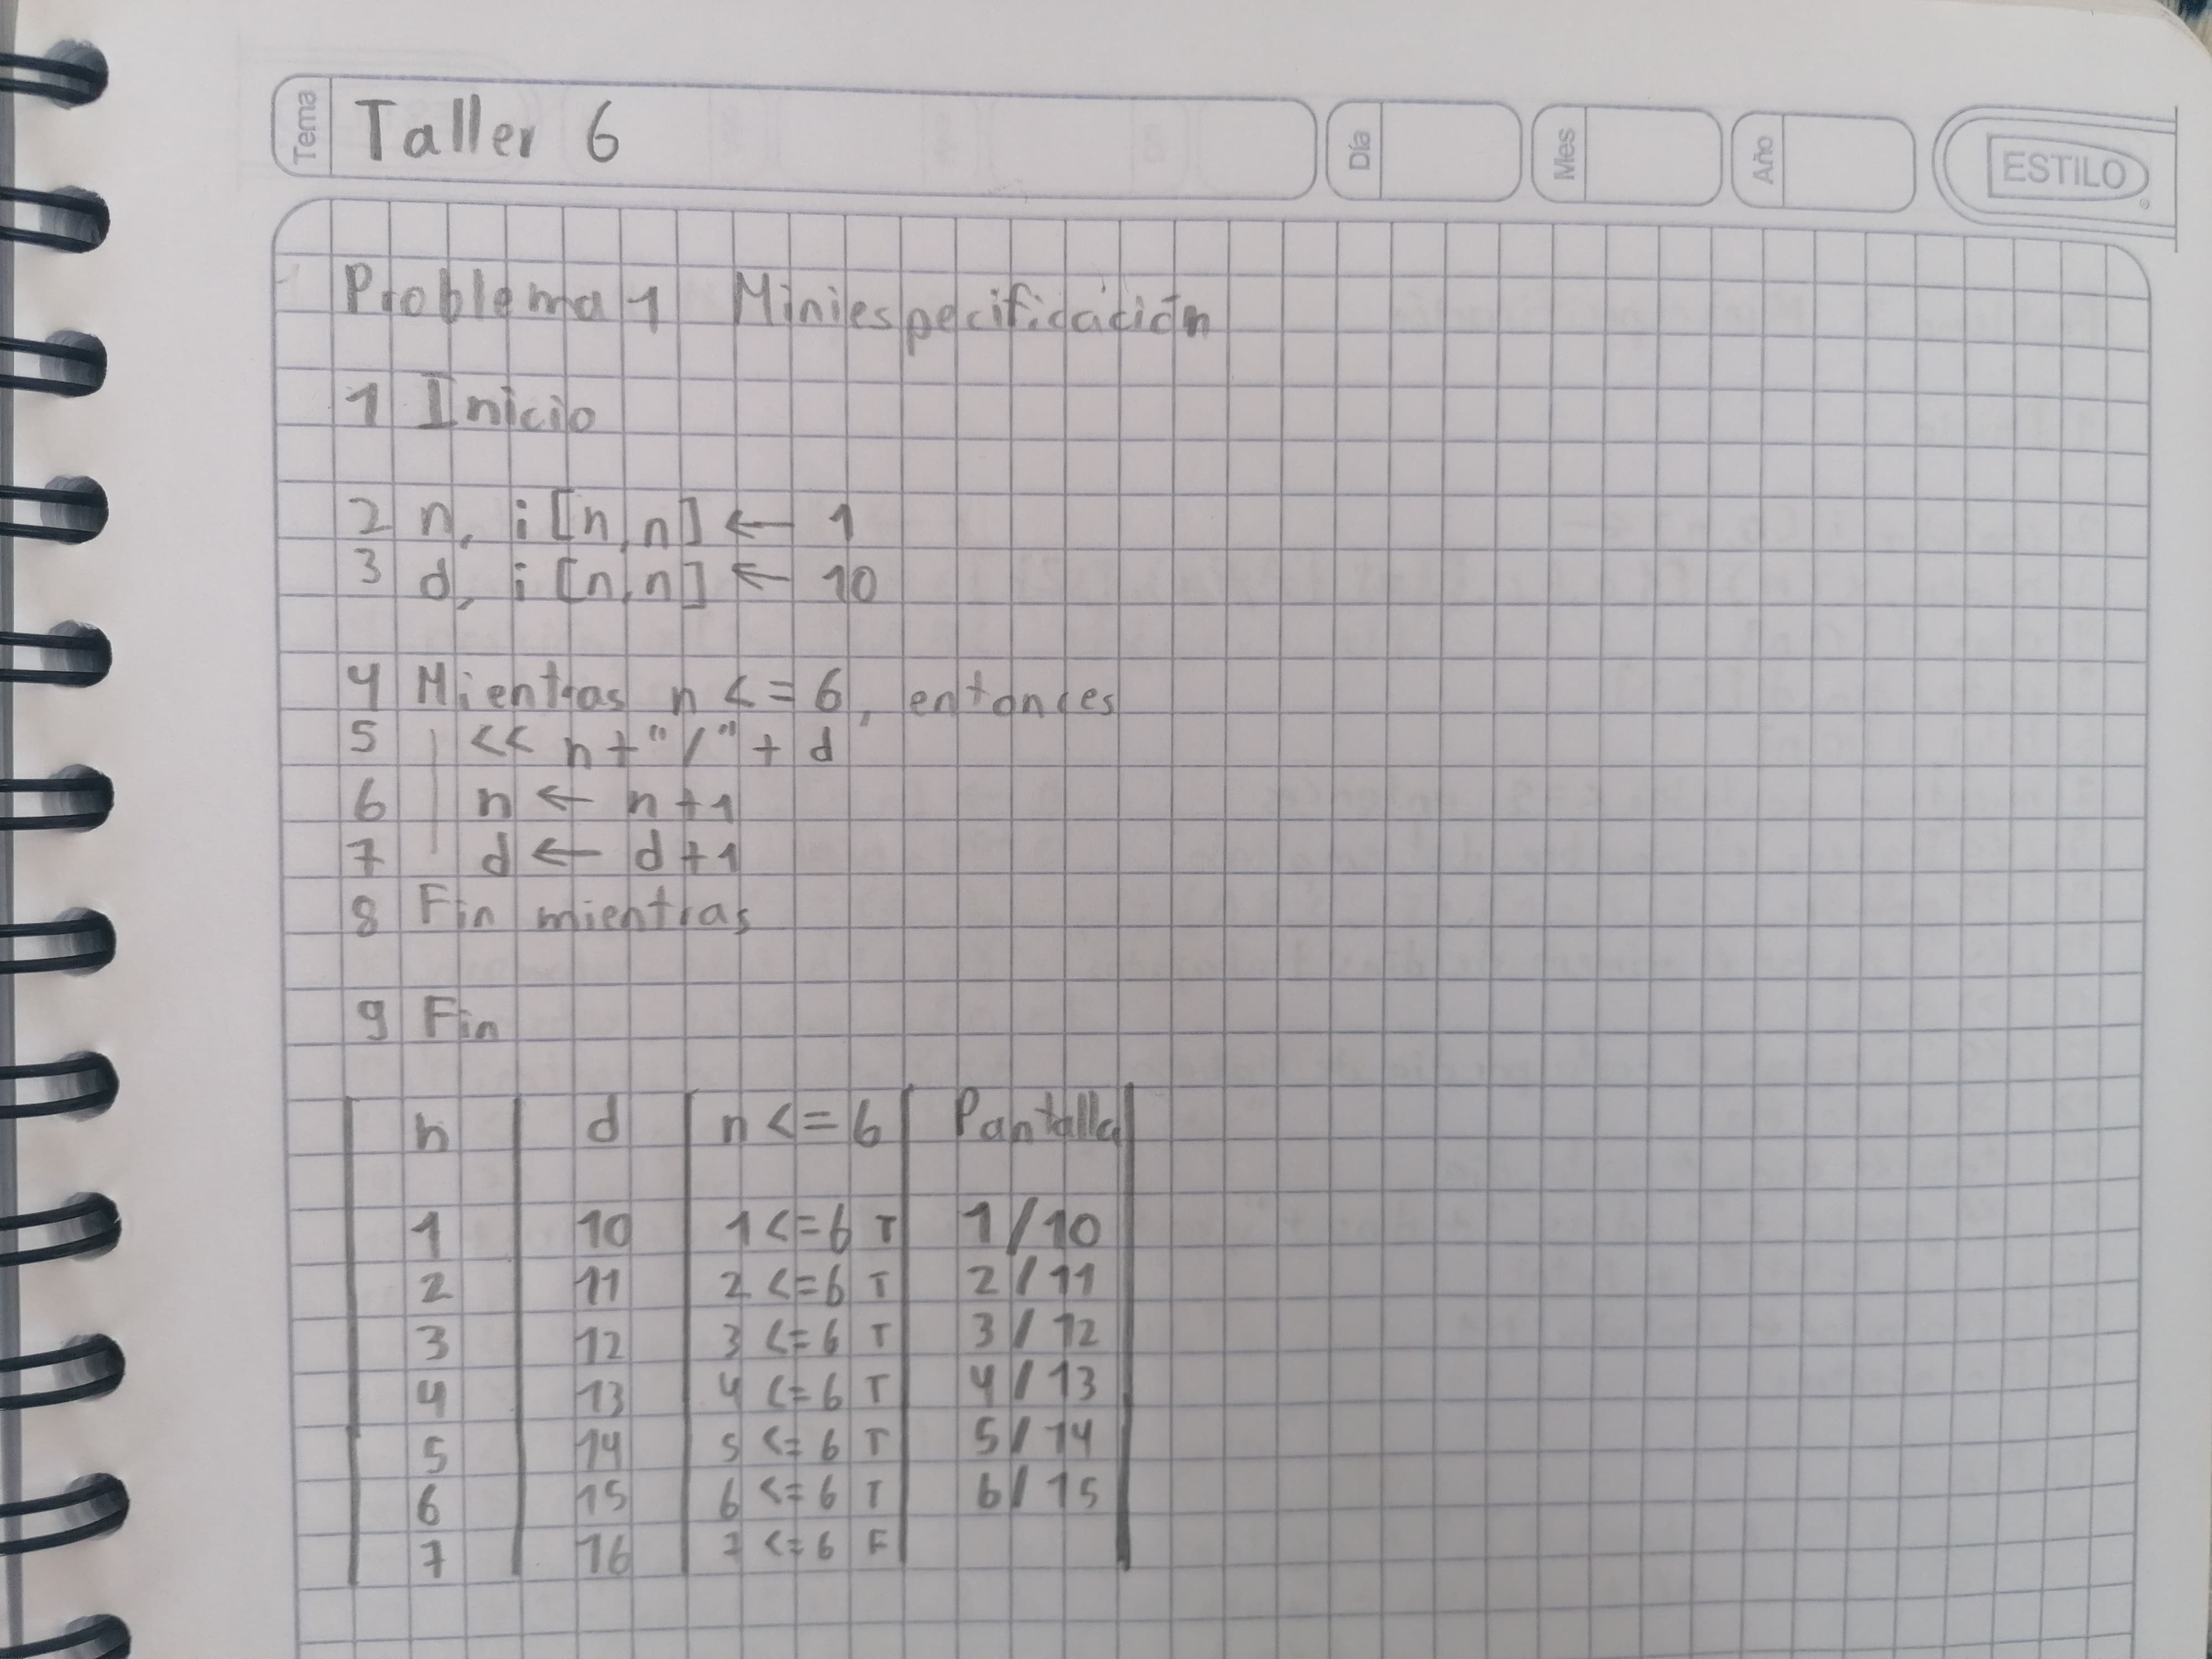 Tema Taller 6 Día Mes Año ESTILO
Problema 1 Miniespecificación
1 Inicio
2 n, i [n,n] ← 1
3 d, i [n,n] ← 10
4 Mientras n <= 6, entonces
5 << n + "/" + d
6 n ← n+1
7 d ← d+1
8 Fin mientras
9 Fin
n d n <= 6 Pantalla
1 10 1 <= 6 T 1/10
2 11 2 <= 6 T 2/11
3 12 3 <= 6 T 3/12
4 13 4 <= 6 T 4/13
5 14 5 <= 6 T 5/14
6 15 6 <= 6 T 6/15
7 16 7 <= 6 F